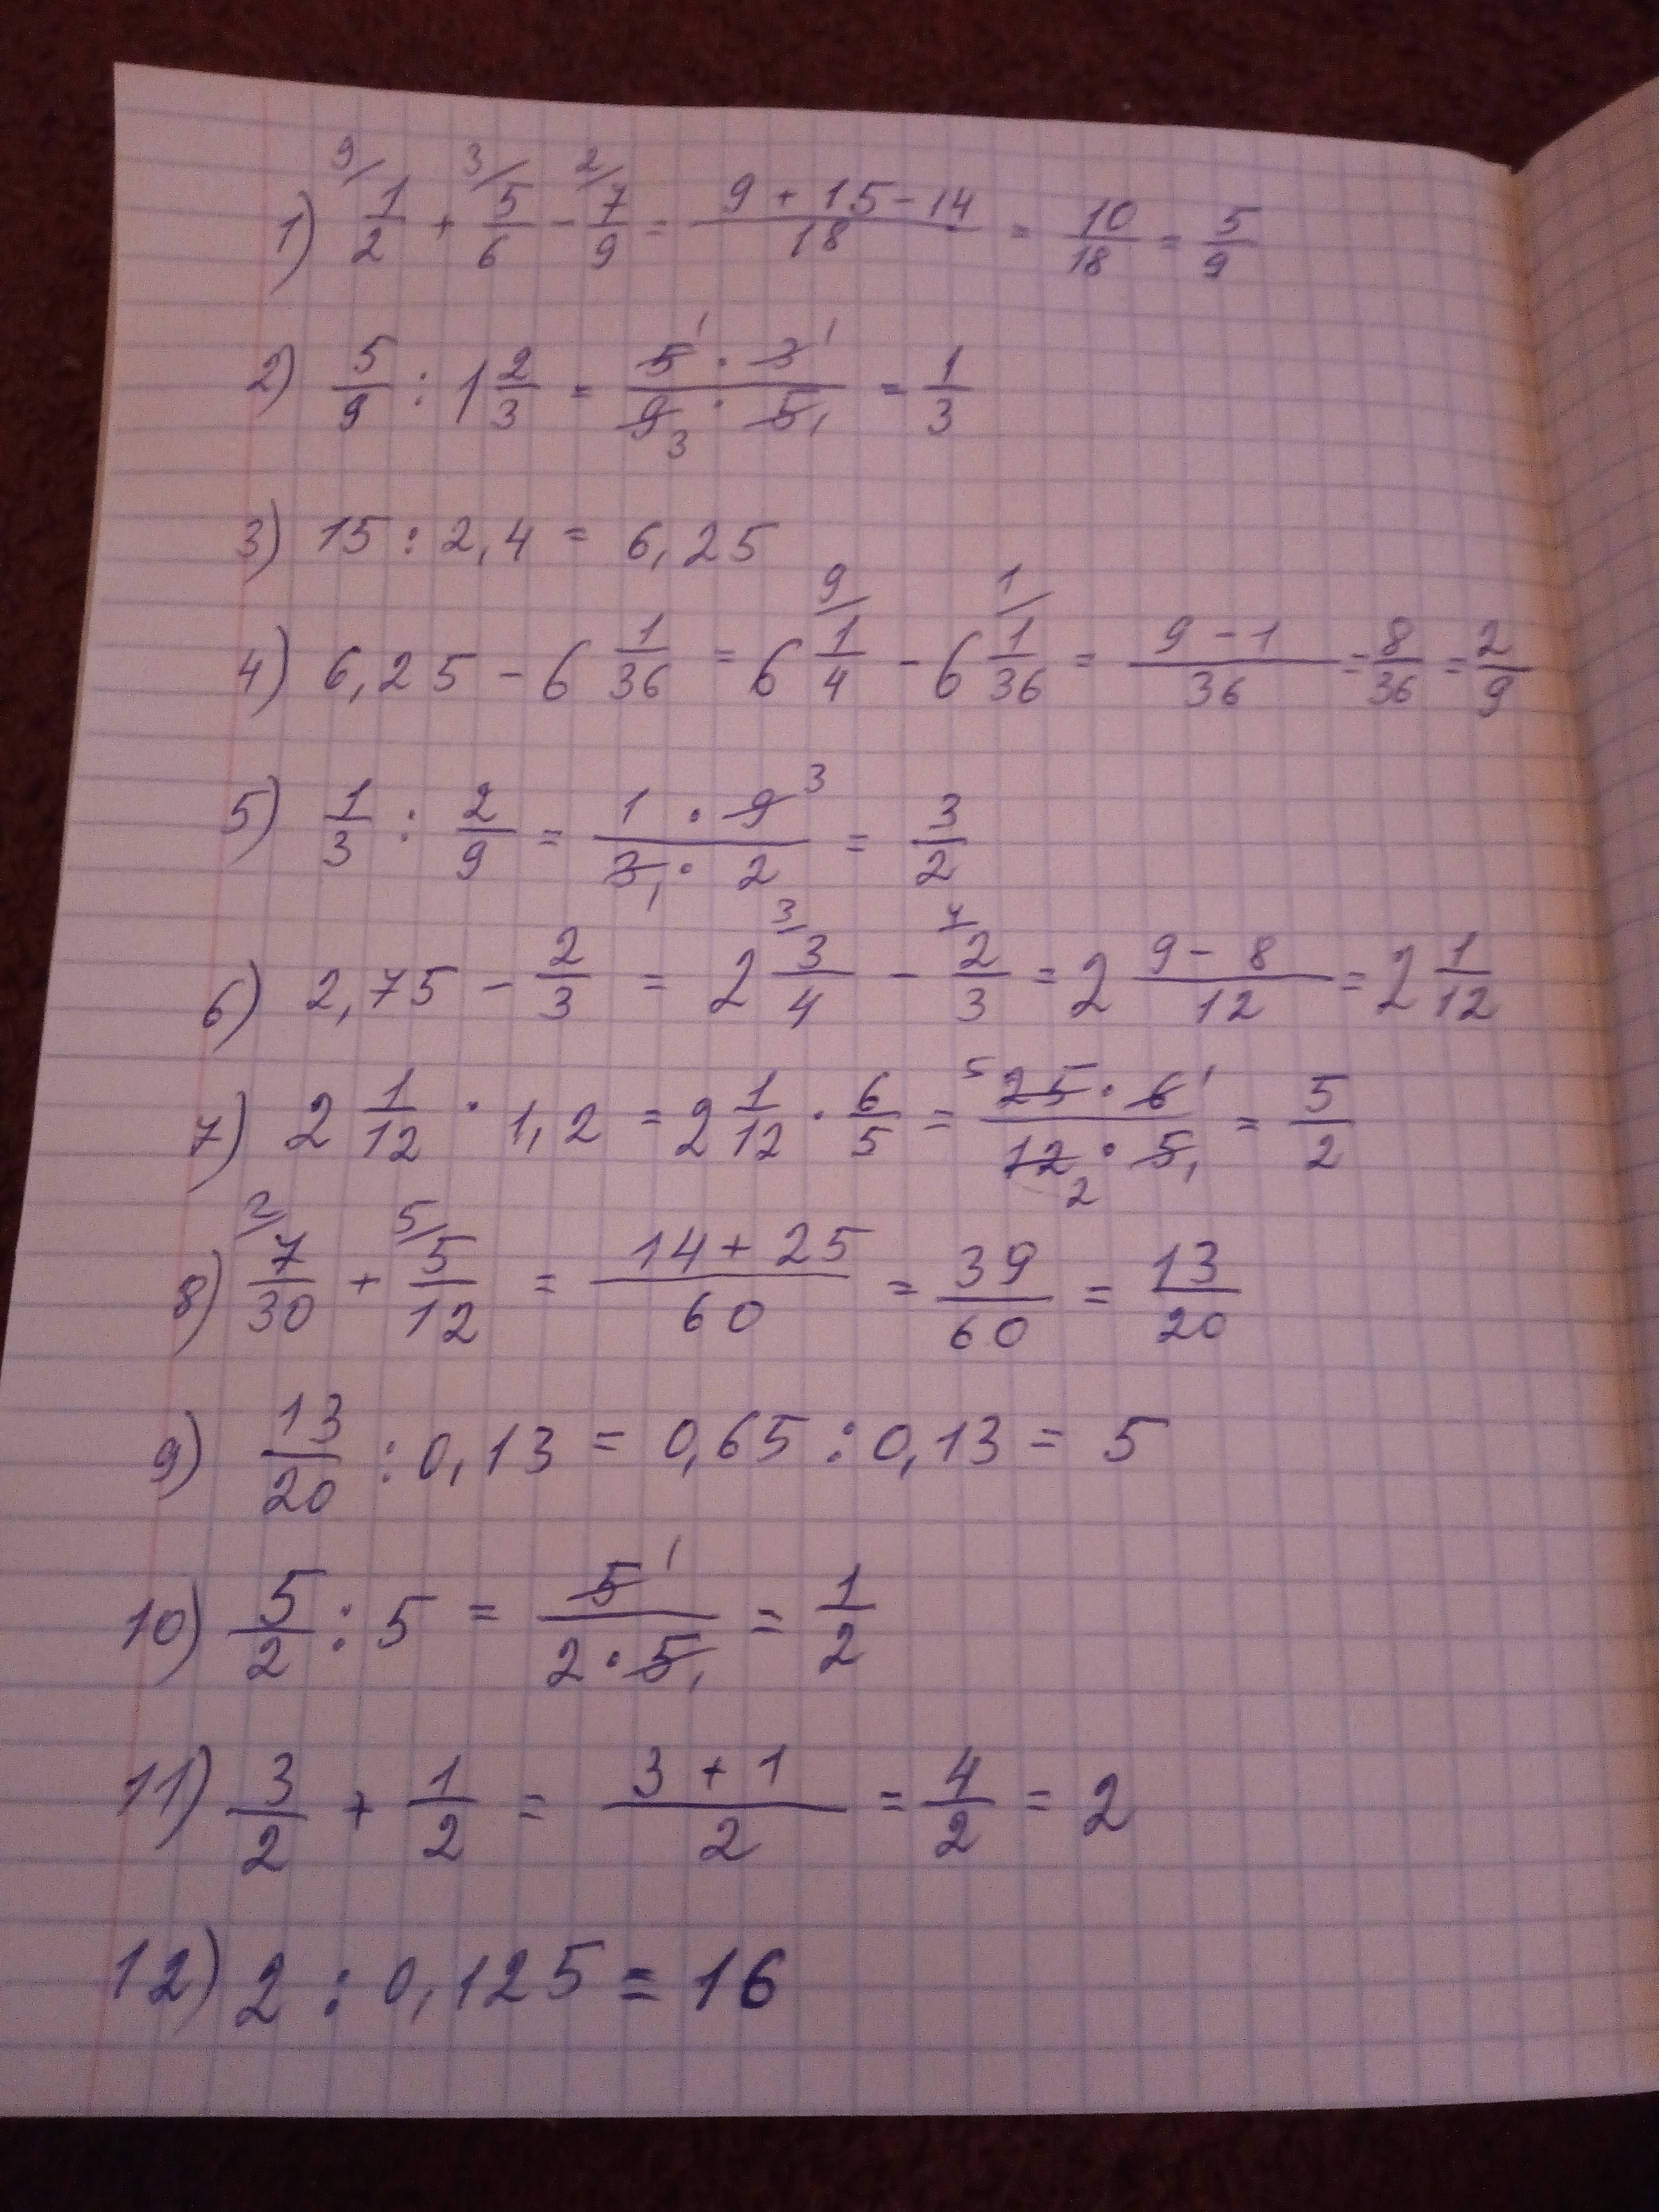 1) 9/ 1/2 + 3/ 5/6 - 2/ 7/9 = (9 + 15 - 14)/18 = 10/18 = 5/9
2) 5/9 : 1 2/3 = (5¹ · 3¹)/(9₃ · 5₁) = 1/3
3) 15 : 2,4 = 6,25
4) 6,25 - 6 1/36 = 6 9/ 1/4 - 6 1/ 1/36 = (9 - 1)/36 = 8/36 = 2/9
5) 1/3 : 2/9 = (1 · 9³)/(3₁ · 2) = 3/2
6) 2,75 - 2/3 = 2 3/ 3/4 - 4/ 2/3 = 2 (9 - 8)/12 = 2 1/12
7) 2 1/12 · 1,2 = 2 1/12 · 6/5 = (⁵25 · 6¹)/(12₂ · 5₁) = 5/2
8) 2/ 7/30 + 5/ 5/12 = (14 + 25)/60 = 39/60 = 13/20
9) 13/20 : 0,13 = 0,65 : 0,13 = 5
10) 5/2 : 5 = 5¹/(2 · 5₁) = 1/2
11) 3/2 + 1/2 = (3 + 1)/2 = 4/2 = 2
12) 2 : 0,125 = 16